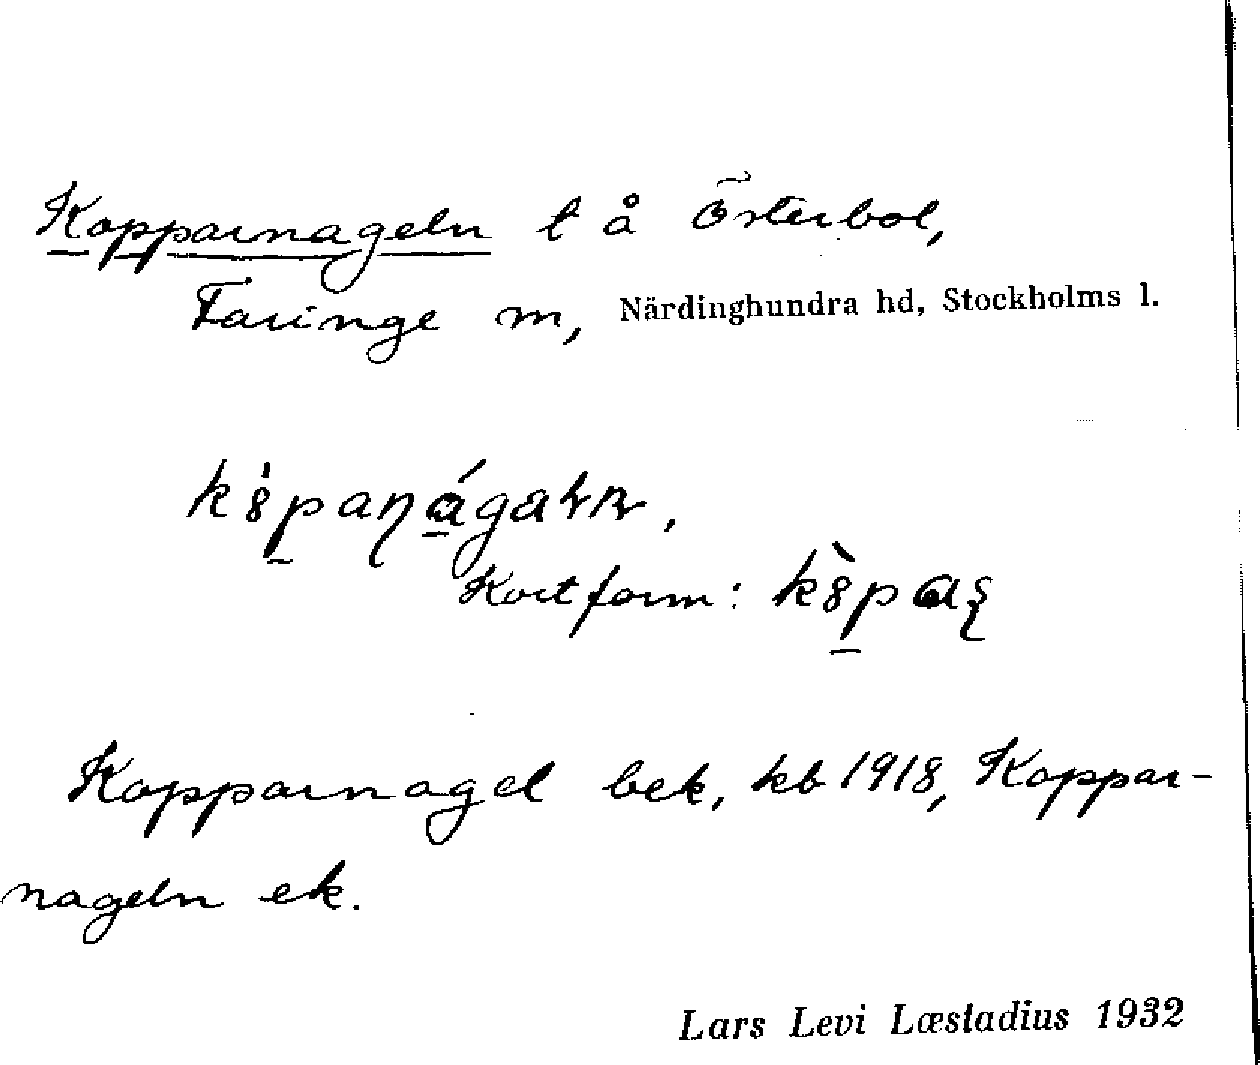 Kopparnageln t å Österbol,
Faringe sn, Närdinghundra hd, Stockholms l.
Kortform:
Kopparnagel bek, kb 1918, Koppar-
nageln ek.
Lars Levi Læstadius 1932